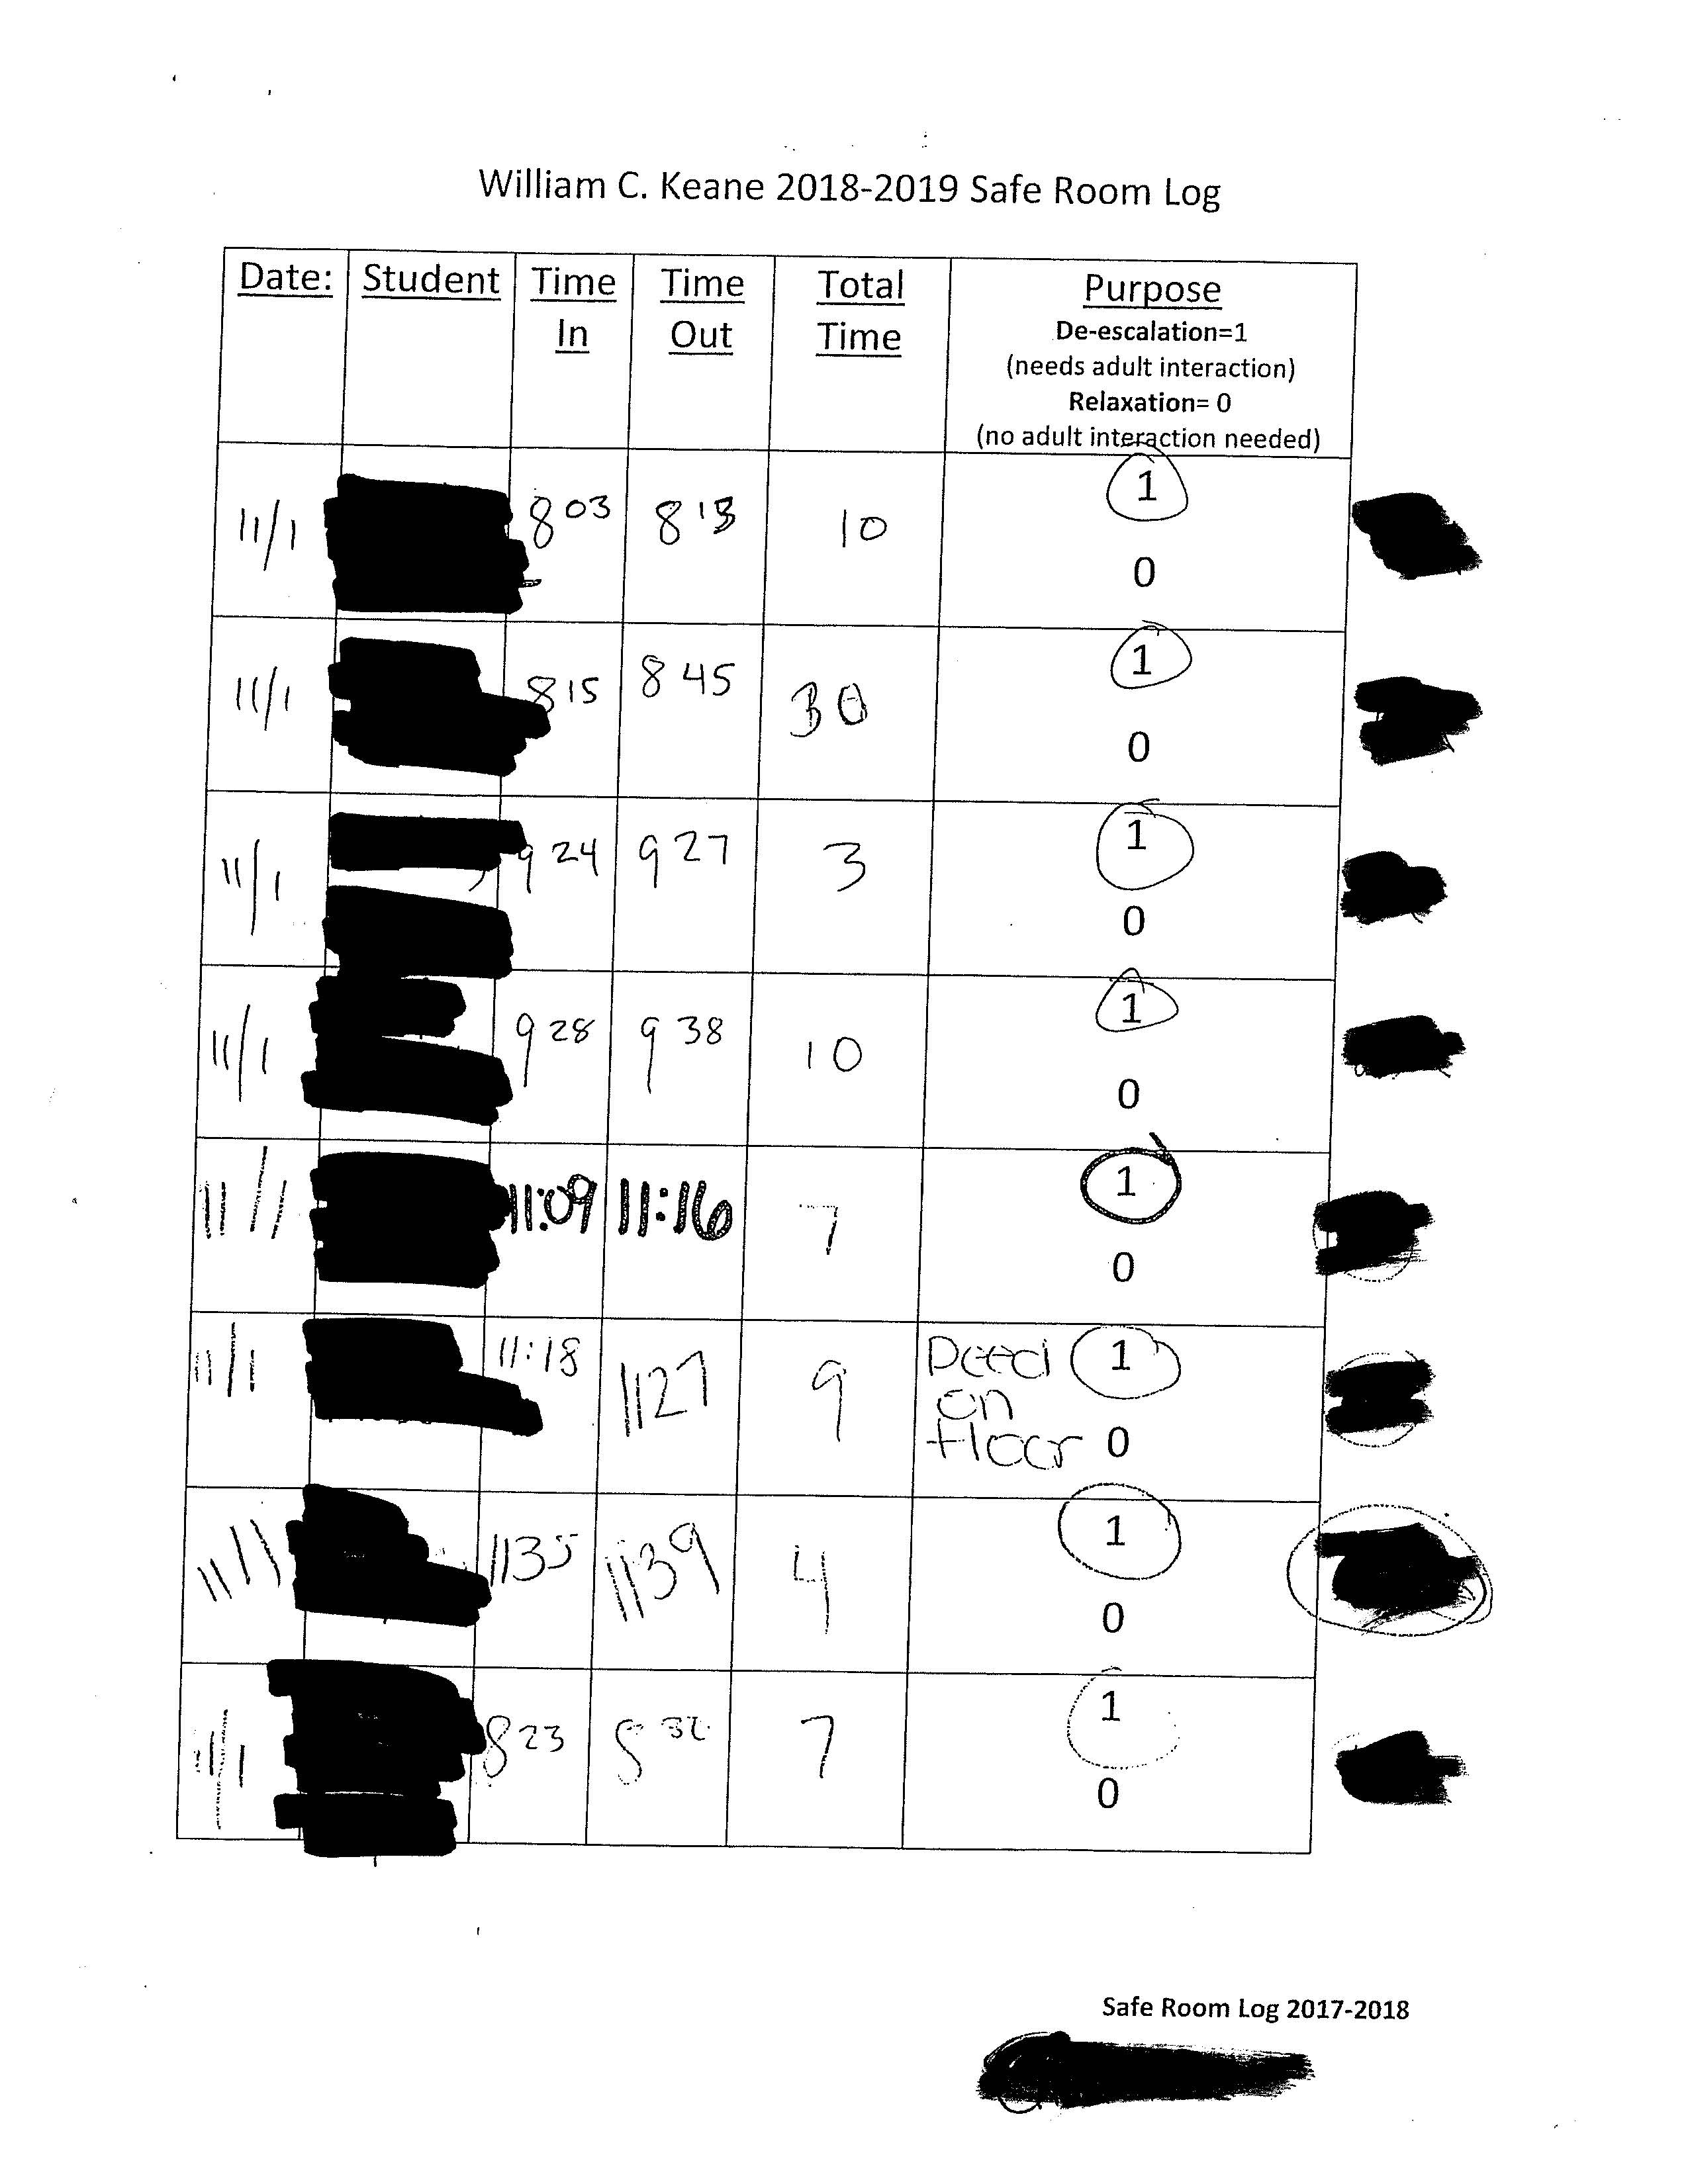 William C. Keane 2018-2019 Safe Room Log
Date: Student Time In Time Out Total Time Purpose
De-escalation=1
(needs adult interaction)
Relaxation= 0
(no adult interaction needed)
11/1 8 03 8 13 10 1
0
11/1 8 15 8 45 30 1
0
11/1 9 24 9 27 3 1
0
11/1 9 28 9 38 10 1
0
11/1 11:09 11:16 7 1
0
11/1 11:18 1127 9 Peed on floor 1
0
11/1 1135 1139 4 1
0
11/1 8 23 7 1
0
Safe Room Log 2017-2018